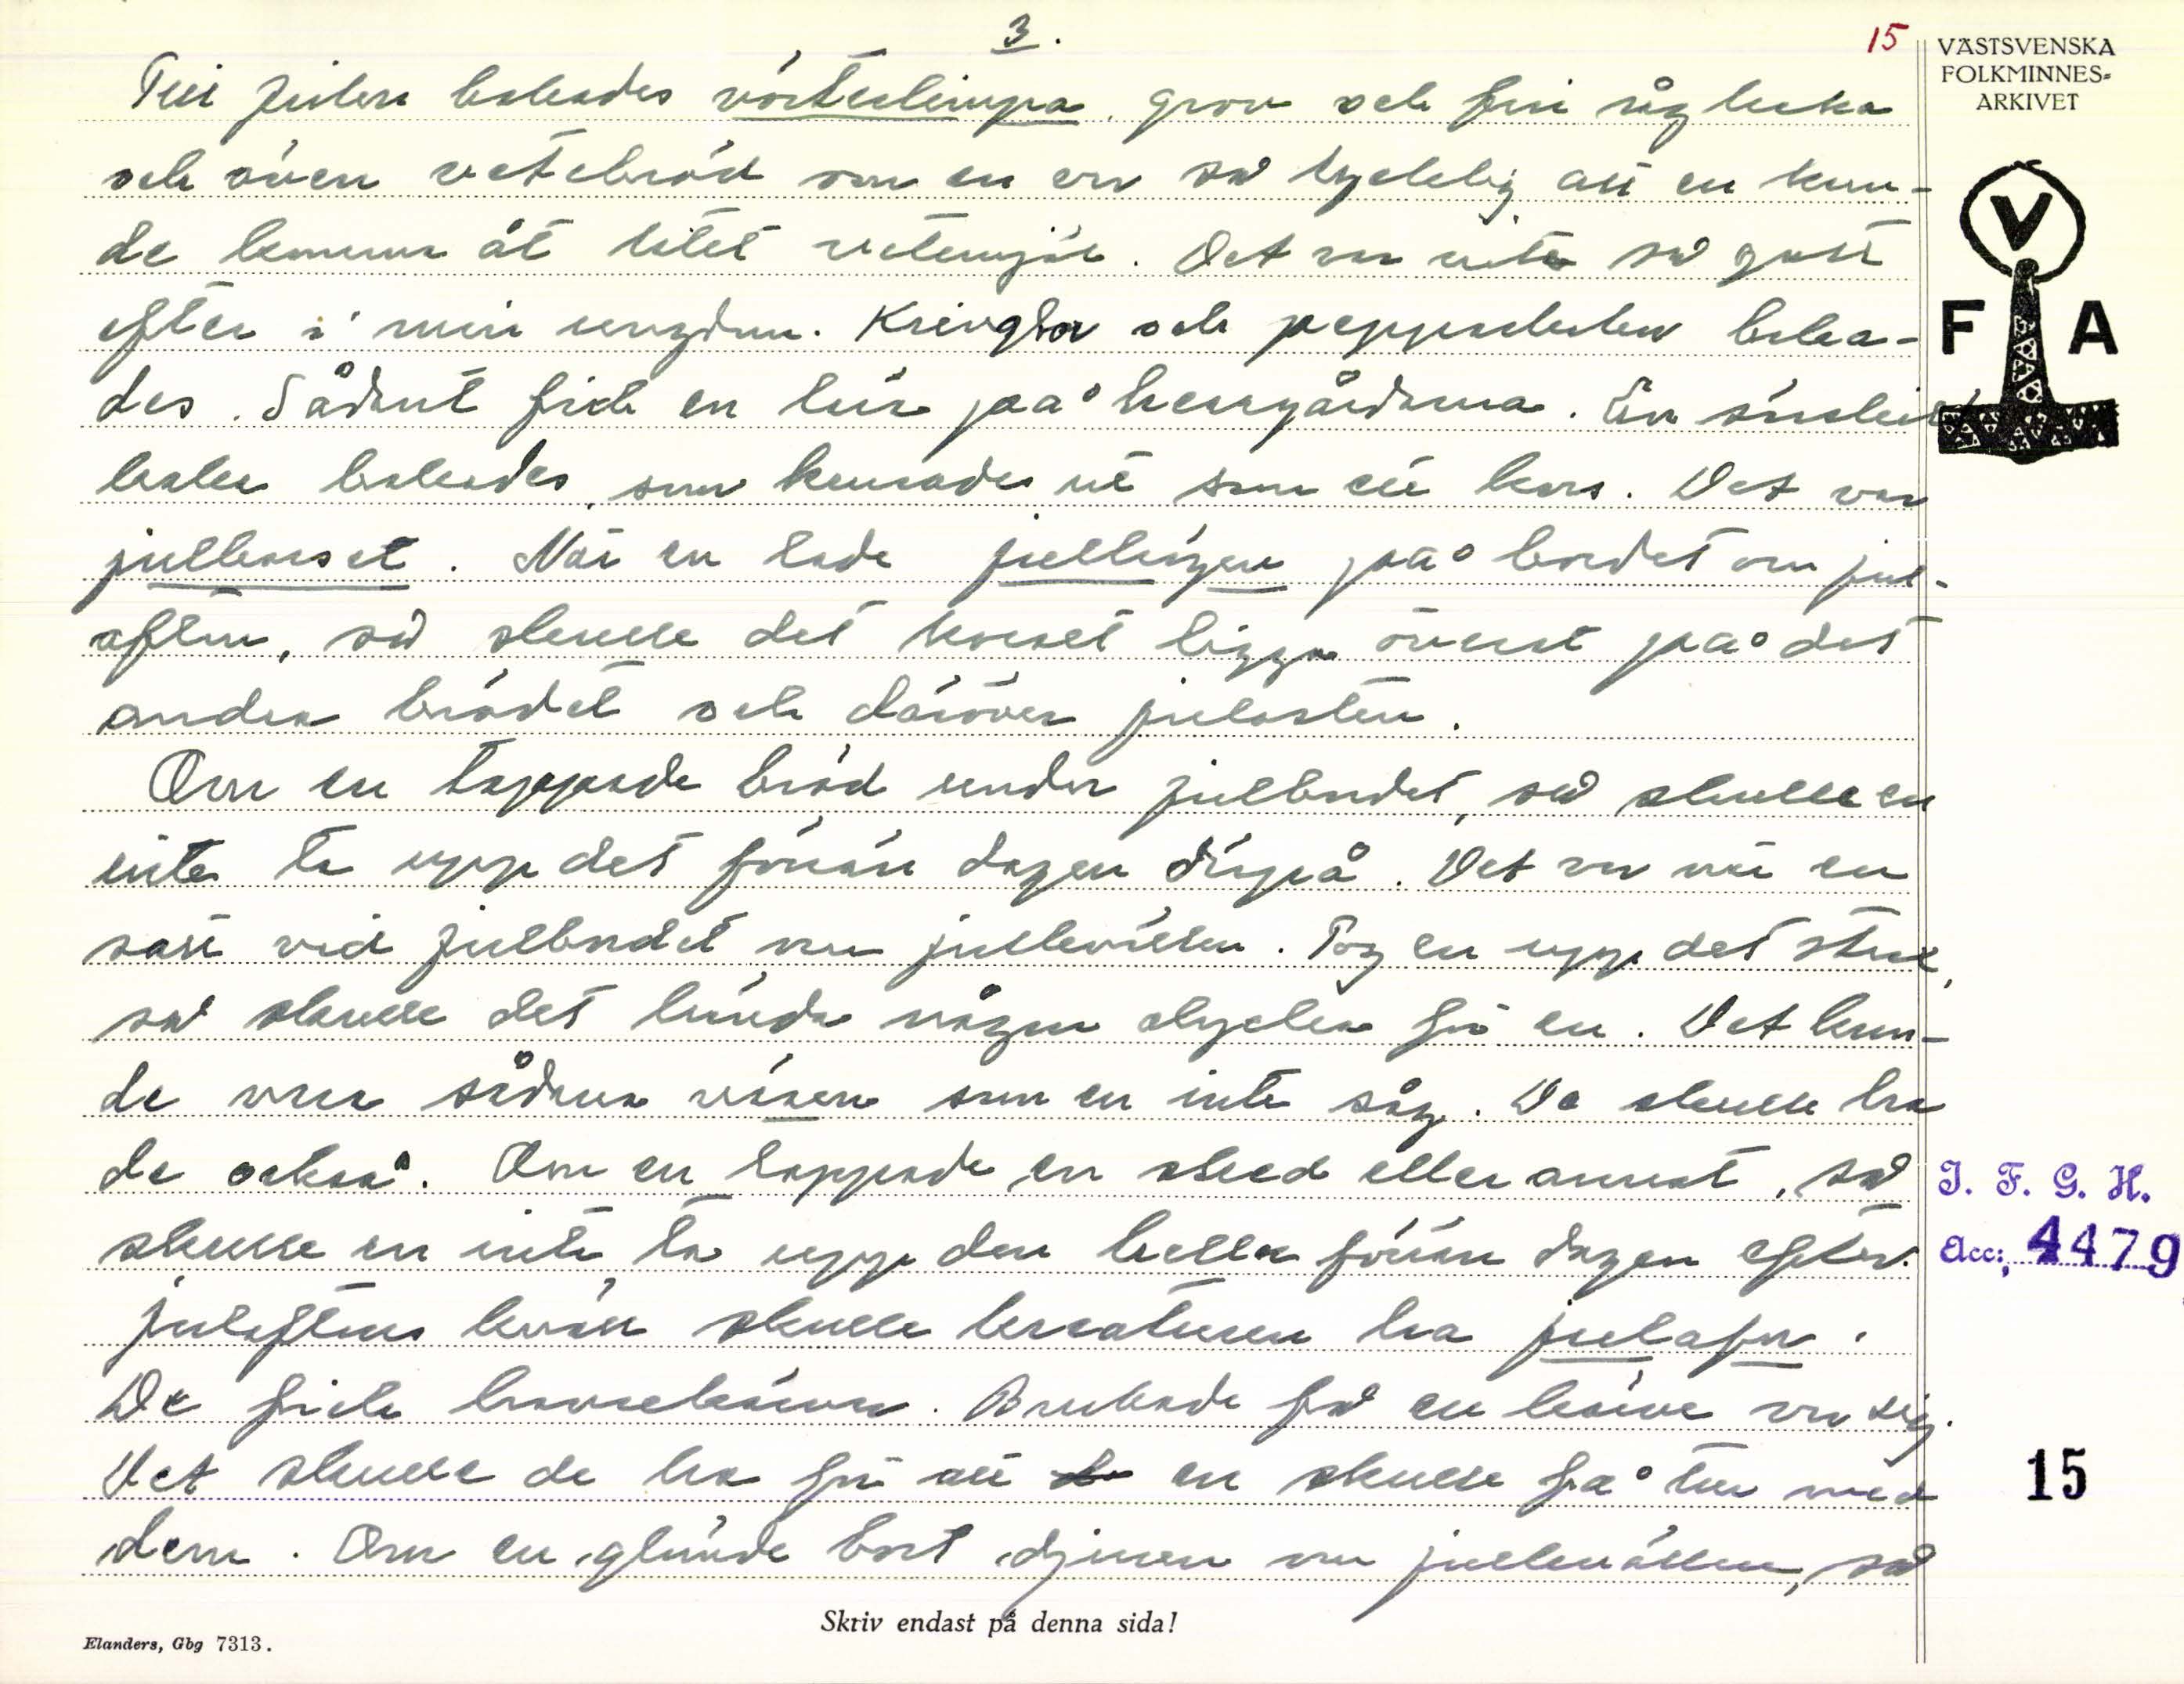 3.
15
VÄSTSVENSKA
FOLKMINNES-
ARKIVET
V
F A
Till julen bakades vörtelimpa, grov och fin råg kaka
och även vetebröd om en var så lycklig att en kun-
de komma åt litet vetemjöl. Det var inte så gott
efter i min ungdom. Kringlor och pepparkakor baka-
des. Sådant fick en lära på herrgårdarna. En särskild
kaka bakades, som kunnades ut som ett kors. Det var
julkorset. När en lade jullögen på bordet om jul-
afton, så skulle det korset ligga överst på det
andra brödet och däröver julosten.
Om en tappade bröd under julbordet, så skulle en
inte ta upp det förrän dagen därpå. Det var när en
satt vid julbordet om julkvällen. Tog en upp det strax,
så skulle det hända någon olycka för en. Det kun-
de vara sådana väsen som en inte såg. De skulle ha
de också. Om en tappade en sked eller annat, så
skulle en inte ta upp den heller förrän dagen efter.
Julaftons kväll skulle kreaturen ha julafton.
De fick havrekärvar. Brukade få en kärve var sig.
Det skulle de ha för att en skulle få tur med
dem. Om en glömde bort djuren om julkvällen, så
J. F. G. H.
Acc: 4479
15
Skriv endast på denna sida!
Elanders, Gbg 7313.